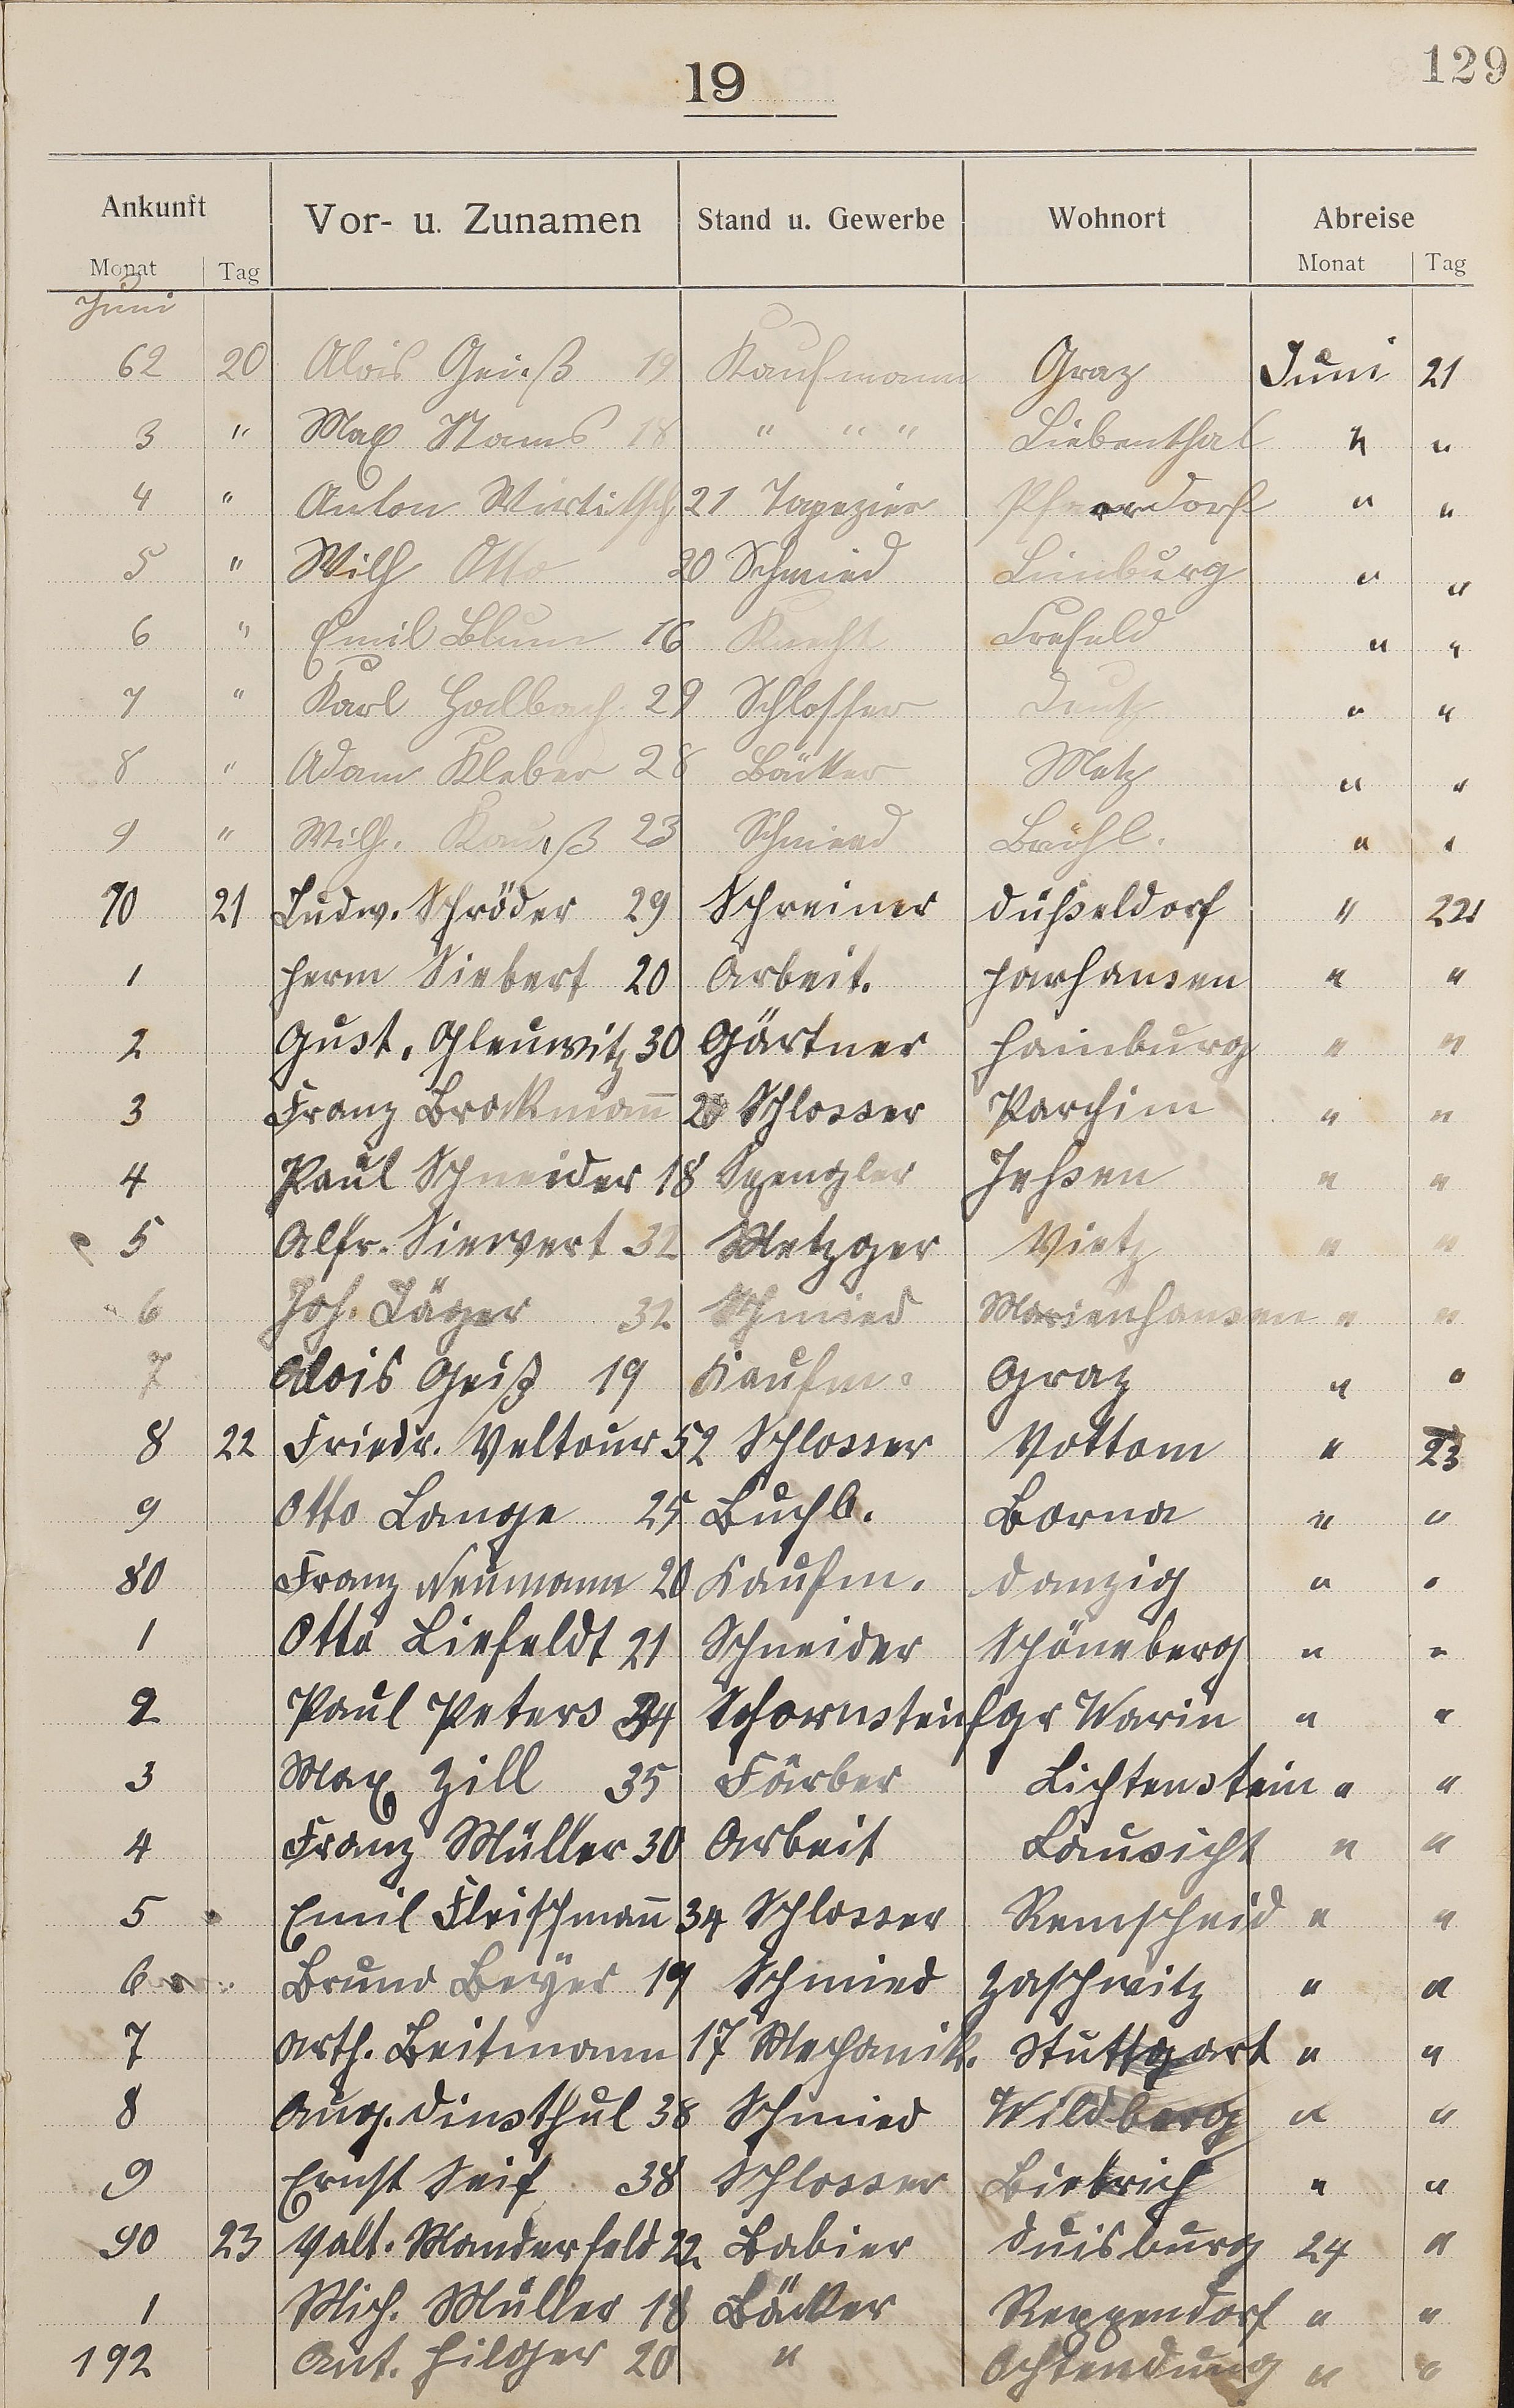 129
19
Ankunft Vor- u. Zunamen Stand u. Gewerbe Wohnort Abreise
Monat Tag Monat Tag
Juni
62 20 Alois Geiß 19 Kaufmann Graz Juni 21
3 " Max Stams 18 " " " Liebenthal " "
4 " Anton Wirtitsch 21 Tapezier " "
5 " Wilh Otto 20 Schmied Limburg " "
6 " Emil Blum 16 Knecht Crefeld " "
7 " Karl Halbach 29 Schlosser Deutz " "
8 " Adam Kleber 28 Bäcker Metz " "
9 " Wilh. 23 Schmied Brühl. " "
70 21 Ludw. Schröder 29 Schreiner Düsseldorf " 22
1 Herm Siebert 20 Arbeit. Harhausen " "
2 Gust. Gleuwitz 30 Gärtner Hainburg " "
3 Franz Brockmann̄ Schlosser Parchim " "
4 Paul Schneider 18 Spengler Jeßen " "
5 Alfr. Siewert 32 Metzger Vietz " "
6 Joh. Jäger 32 Schmied Marienhausen " "
7 Alois Geiß 19 Kaufm. Graz " "
8 22 Friedr. Veltour 52 Schlosser Vottom " 23
9 Otto Lange 25 Buchb. Borna " "
80 Franz Neumann 20 Kaufm. Danzig " "
1 Otto Liefeldt 21 Schneider Schöneberg " "
2 Paul Peters 34 Schornsteinfgr Warin " "
3 Max Zill 35 Färber Lichtenstein " "
4 Franz Müller 30 Arbeit Lausicht " "
5 Emil Fleischman̄ 34 Schlosser Remscheid " "
6 Bruno Beyer 19 Schmied Zaschwitz " "
7 Arth. Beitmann 17 Mechanik. Stuttgart " "
8 Aug. Dinsthul 38 Schmied Wildberg " "
9 Ernst Seif 38 Schlosser Biebrich " "
90 23 Valt. Manderfeld 22 Babier Duisburg 24 "
1 Mich. Müller 18 Bäcker Reppendorf " "
192 Ant. Hilger 20 " Ochtendung " "